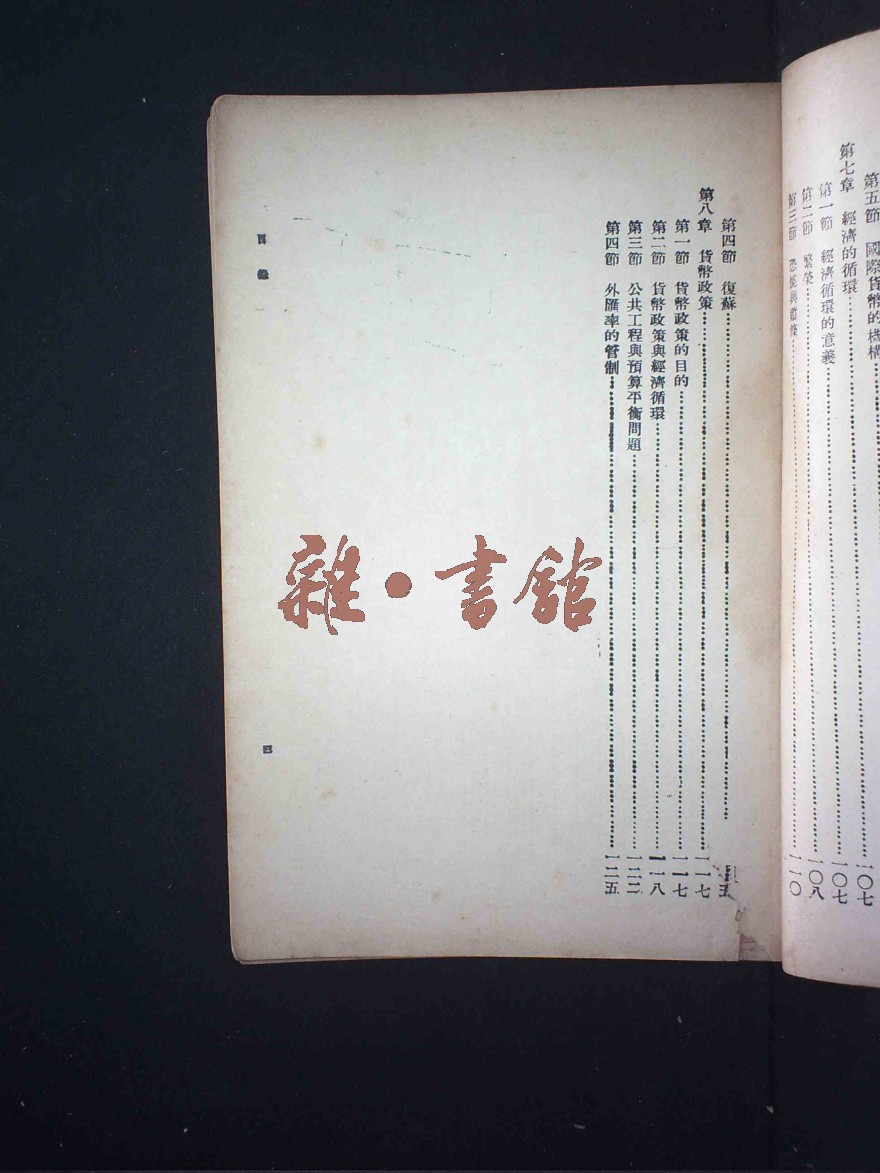 第五節 國際貨幣的機構……一〇七
第七章 經濟的循環……一〇七
第一節 經濟循環的意義……一〇八
第二節 繁榮
第三節 恐慌與蕭條……一一〇
第四節 復蘇……
第八章 貨幣政策……一一七
第一節 貨幣政策的目的……一一七
第二節 貨幣政策與經濟循環……一一八
第三節 公共工程與預算平衡問題……一二二
第四節 外匯率的管制……一二五
目錄
三
雜·書館